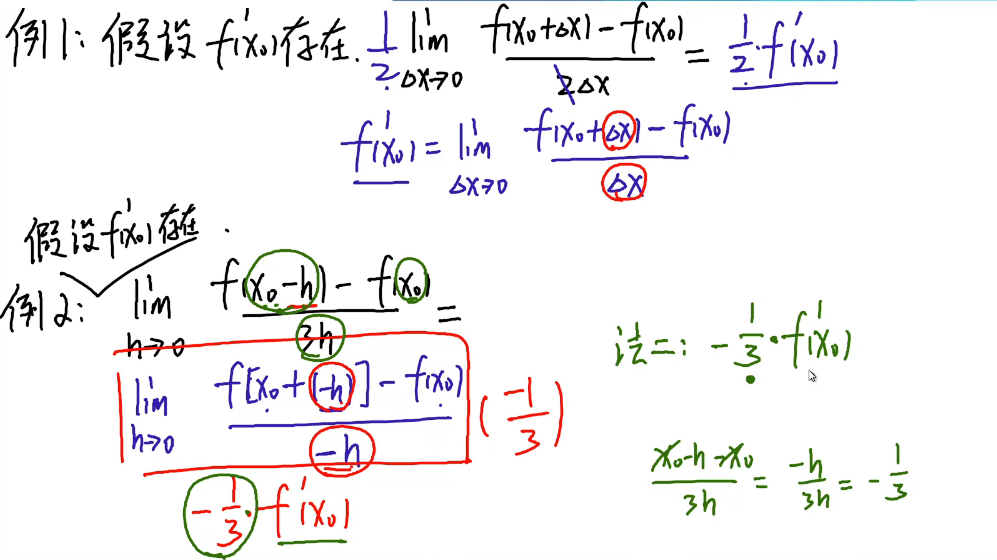 例1: 假设 f'(x₀)存在. 1/2 lim Δx→0 (f(x₀+Δx)-f(x₀))/(2Δx) = 1/2·f'(x₀)
f'(x₀) = lim Δx→0 (f(x₀+Δx)-f(x₀))/Δx
假设f'(x₀)存在.
例2: lim h→0 (f(x₀-h)-f(x₀))/(3h) =
lim h→0 (f[x₀+(-h)]-f(x₀))/(-h) (-1/3)
-1/3·f'(x₀)
法二: -1/3·f'(x₀)
(x₀-h-x₀)/(3h) = (-h)/(3h) = -1/3